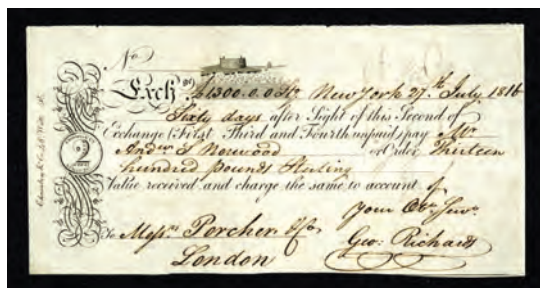 No
Exch. for £1300.0.0 Stg. New York 27th July 1816
Sixty days after Sight of this Second of
Exchange (First Third and Fourth unpaid) pay Mr
Andw S Norwood or Order Thirteen
hundred pounds Sterling
Value received and charge the same to account of
your Obt. Servt.
To Messrs Porcher & Co Geo: Richards
London
2